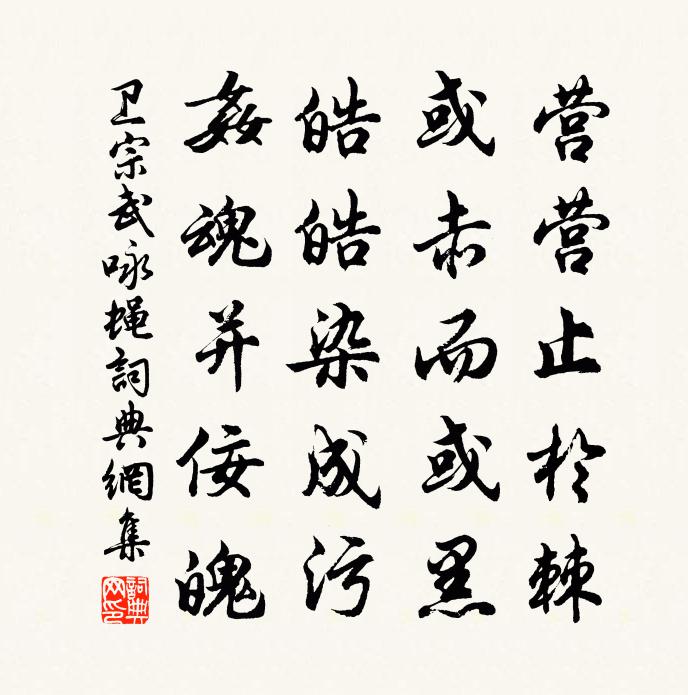 营营止於棘
或赤而或黑
皓皓染成污
姦魂并佞魄
卫宗武咏蝇詞典網集
詞典網印